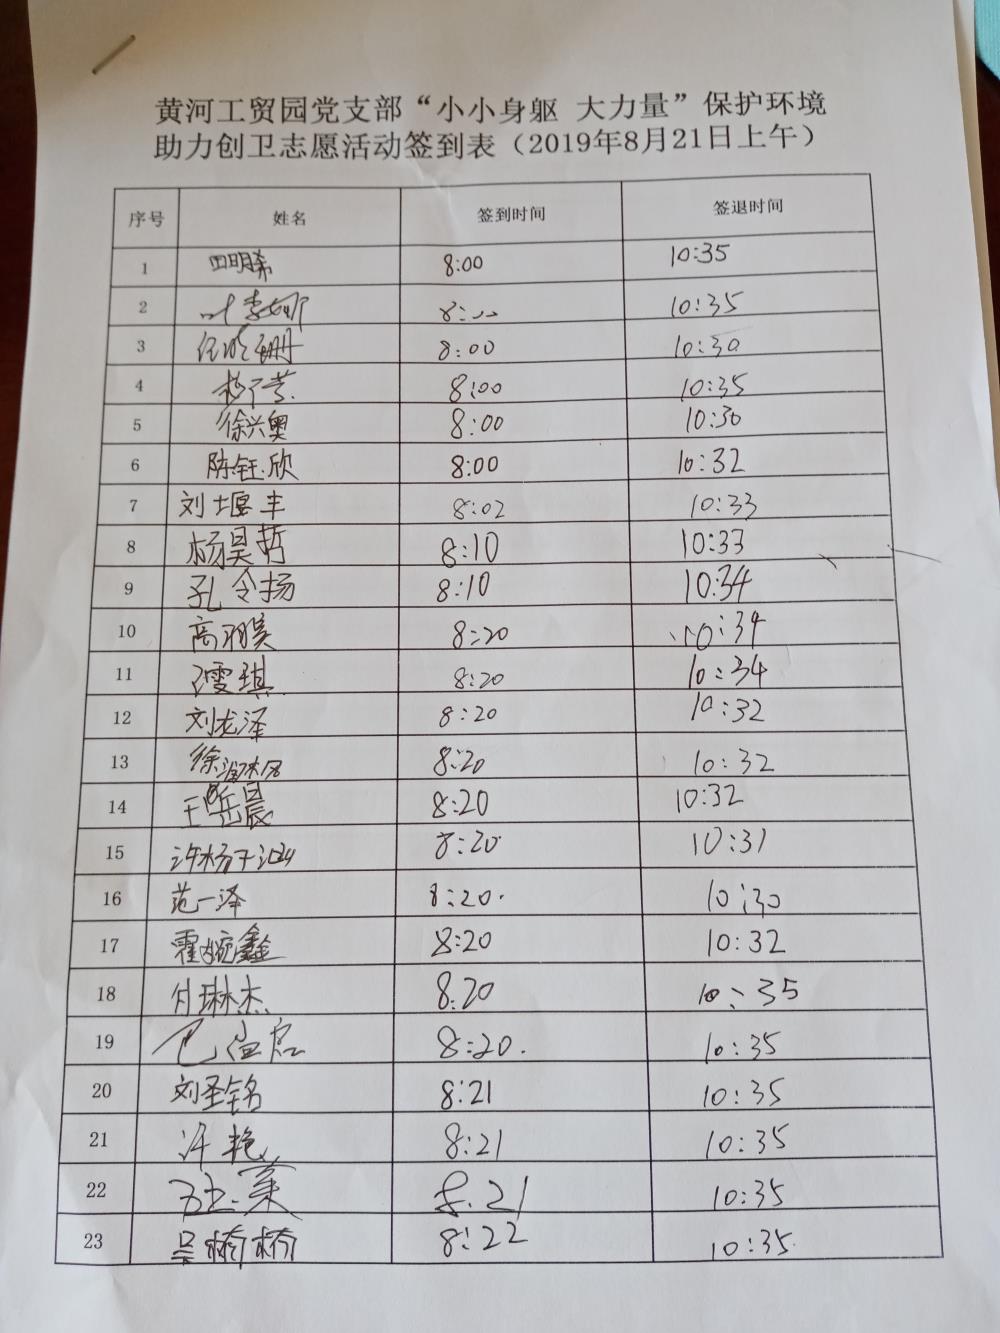 黄河工贸园党支部“小小身躯 大力量”保护环境
助力创卫志愿活动签到表（2019年8月21日上午）
序号 姓名 签到时间 签退时间
1 田明希 8:00 10:35
2 叶李娜 8: 10:35
3 8:00 10:30
4 8:00 10:35
5 徐兴奥 8:00 10:30
6 陈钰欣 8:00 10:32
7 刘士堰丰 8:02 10:33
8 杨昊哲 8:10 10:33
9 孔令扬 8:10 10:34
10 高 8:20 10:34
11 琪 8:20 10:34
12 刘龙泽 8:20 10:32
13 徐 8:20 10:32
14 王岳晨 8:20 10:32
15 许杨子汕 8:20 10:31
16 范一泽 8:20 10:30
17 霍婉鑫 8:20 10:32
18 付琳杰 8:20 10:35
19 8:20 10:35
20 刘圣铭 8:21 10:35
21 许艳 8:21 10:35
22 8:21 10:35
23 吴桥桥 8:22 10:35